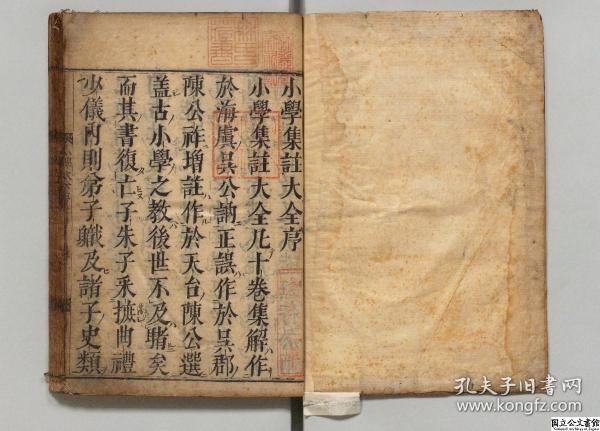 小學集註大全序
小學集註大全九十卷集解作
於海虞吳公訥正誤作於吳郡
陳公祚增註作於天台陳公選
盖古小學之教後世不及睹矣
而其書復亡子朱子釆摭曲禮
少儀内則弟子職及諸子史類
孔夫子旧书网
www.kongfz.com
国立公文書館
National Archives of Japan